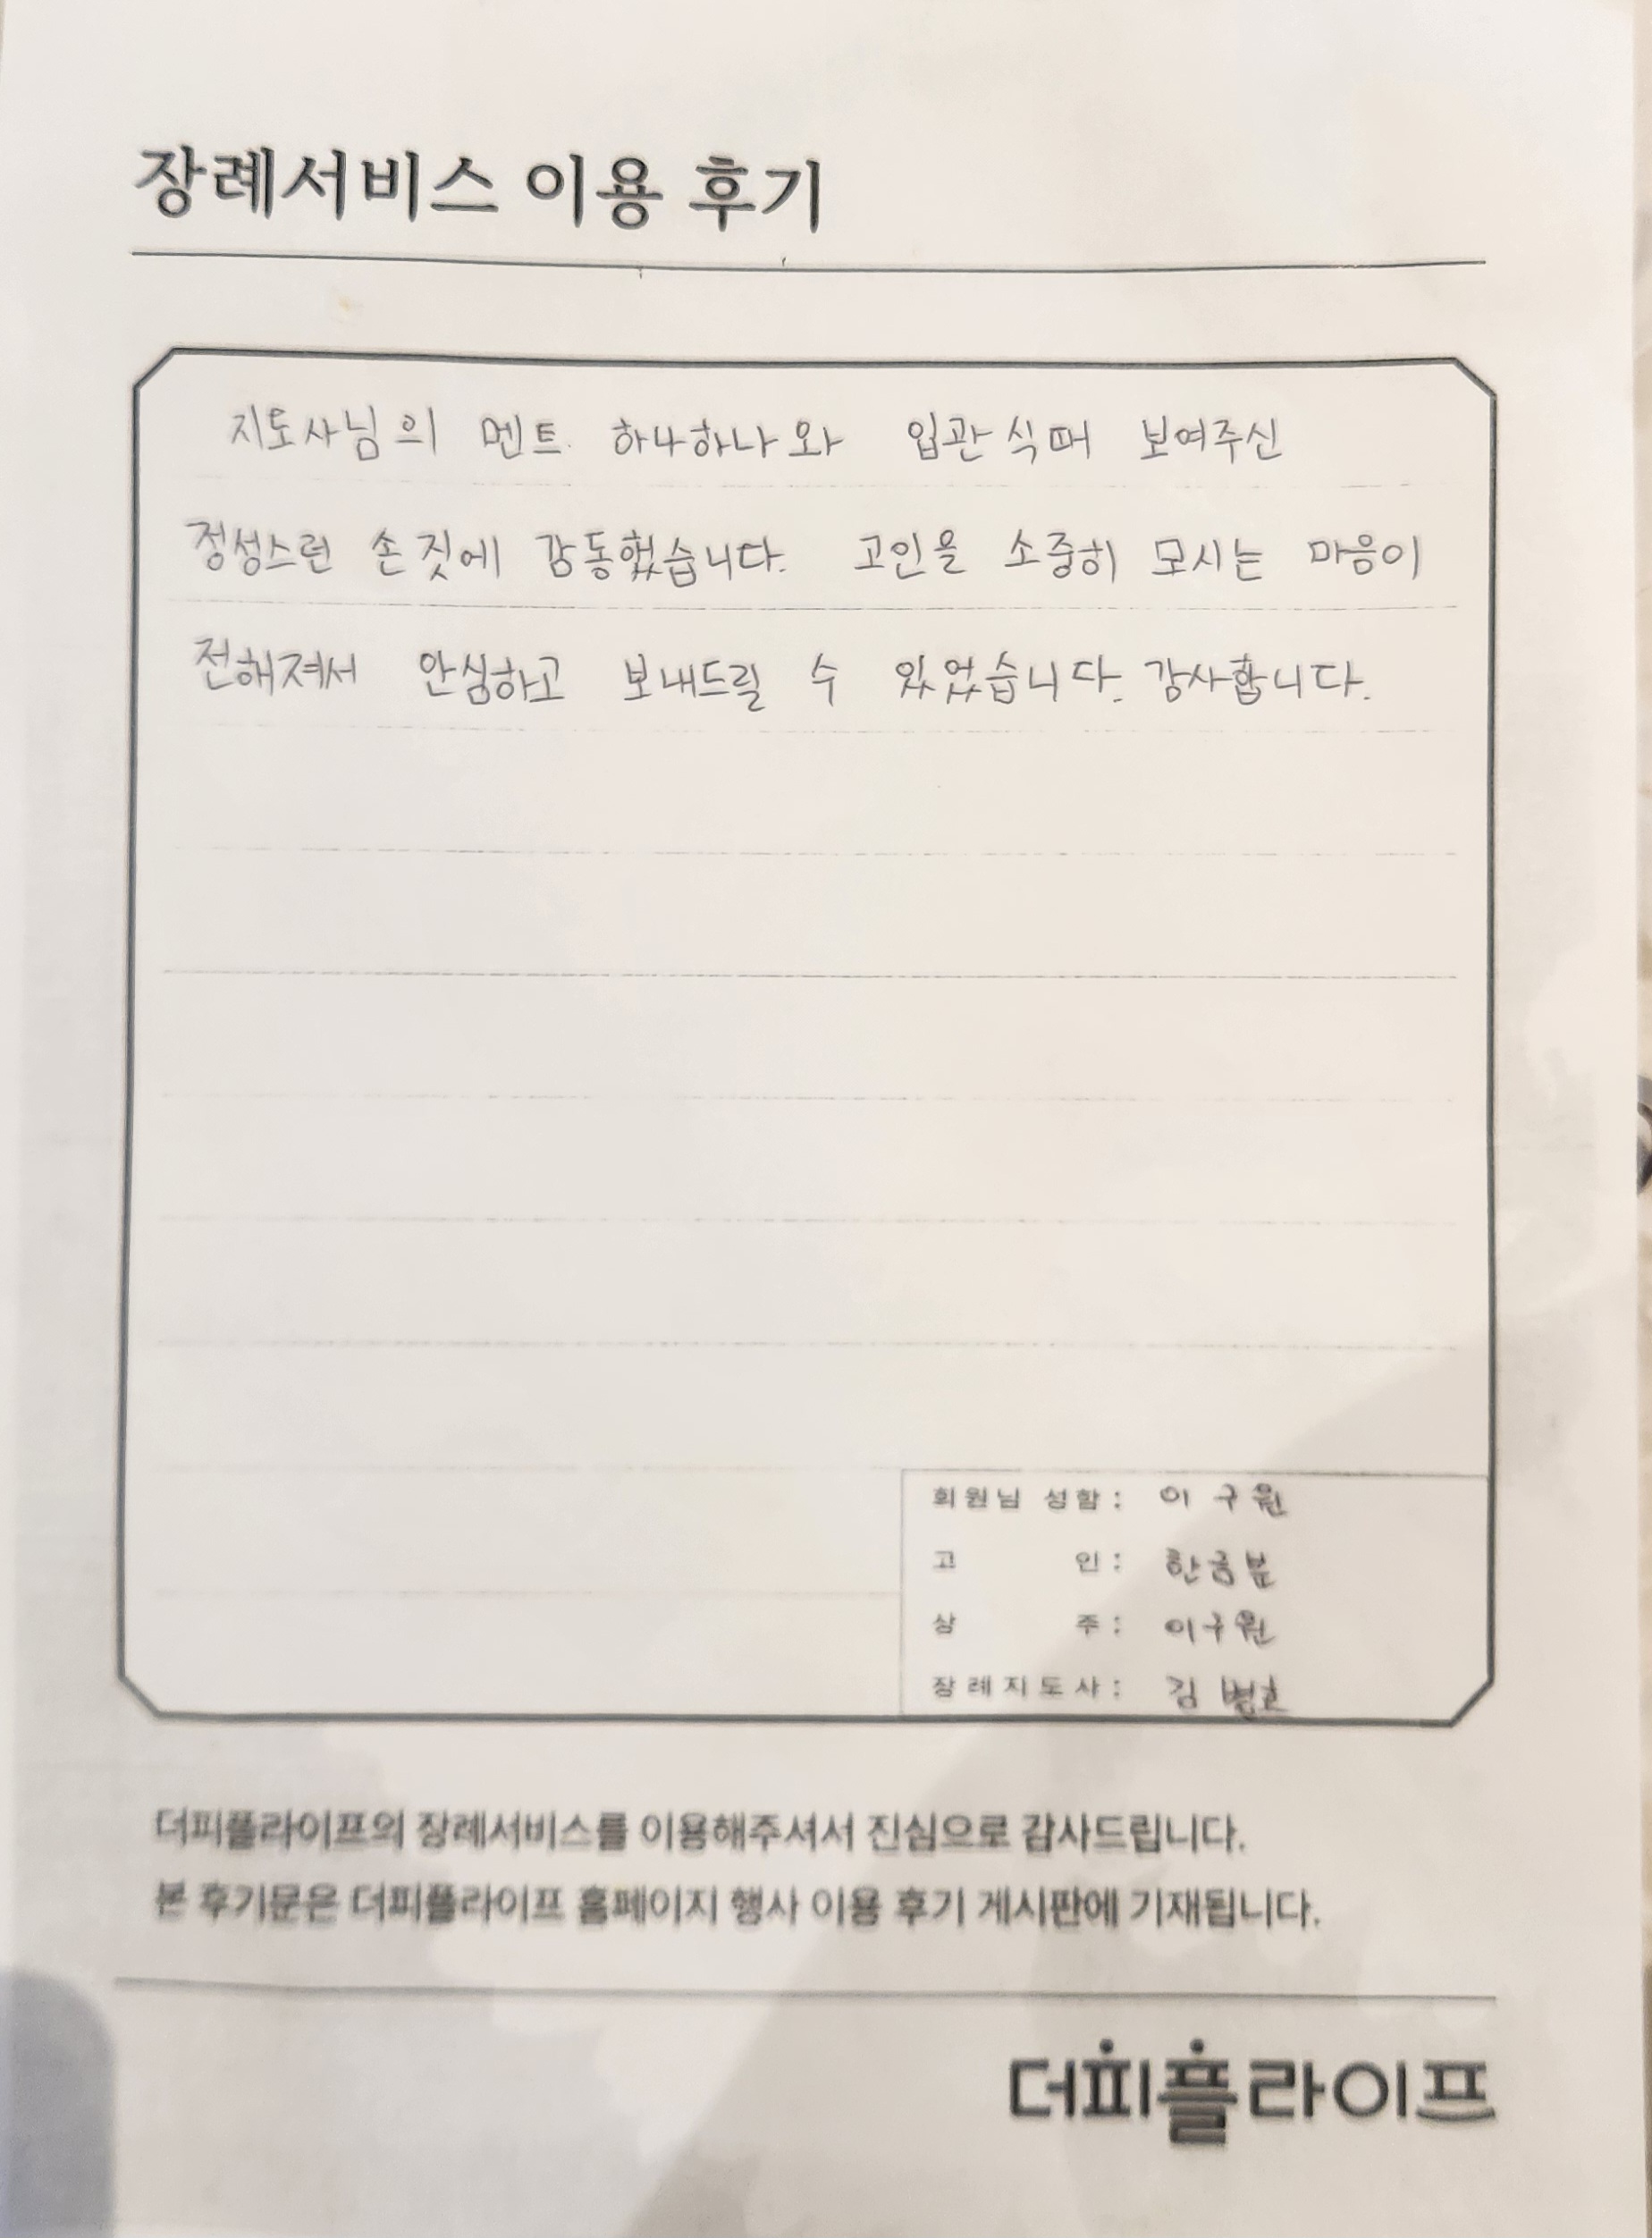 장례서비스 이용 후기
지도사님의 멘트 하나하나와 입관식때 보여주신
정성스런 손짓에 감동했습니다. 고인을 소중히 모시는 마음이
전해져서 안심하고 보내드릴 수 있었습니다. 감사합니다.
회원님 성함 : 이구원
고 인 : 한금분
상 주 : 이구원
장례지도사 : 김
더피플라이프의 장례서비스를 이용해주셔서 진심으로 감사드립니다.
본 후기문은 더피플라이프 홈페이지 행사 이용 후기 게시판에 기재됩니다.
더피플라이프